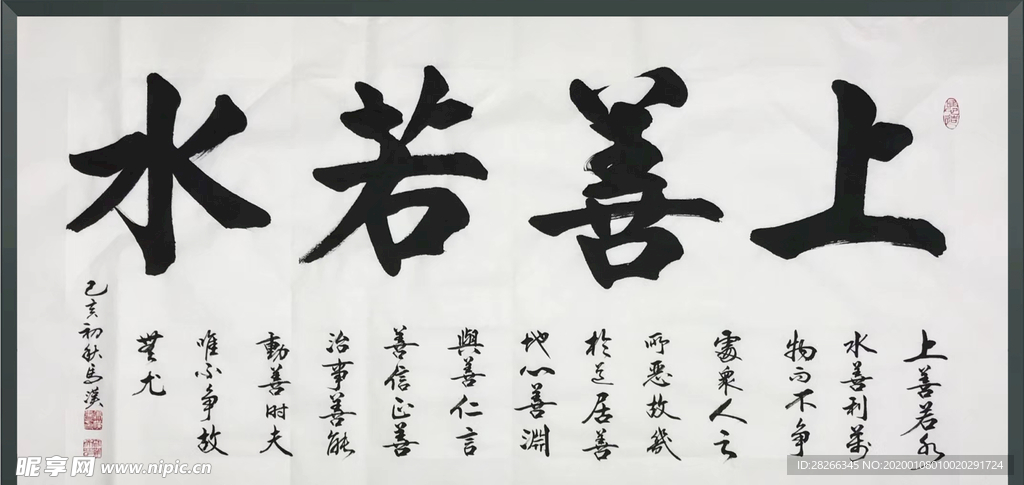 上善若水
上善若水
水善利萬
物而不争
處衆人之
所惡故幾
於道居善
地心善淵
與善仁言
善信正善
治事善能
動善时夫
唯不争故
無尤
己亥初秋馬漢
昵享网 www.nipic.cn
ID:28266345 NO:20200108010020291724